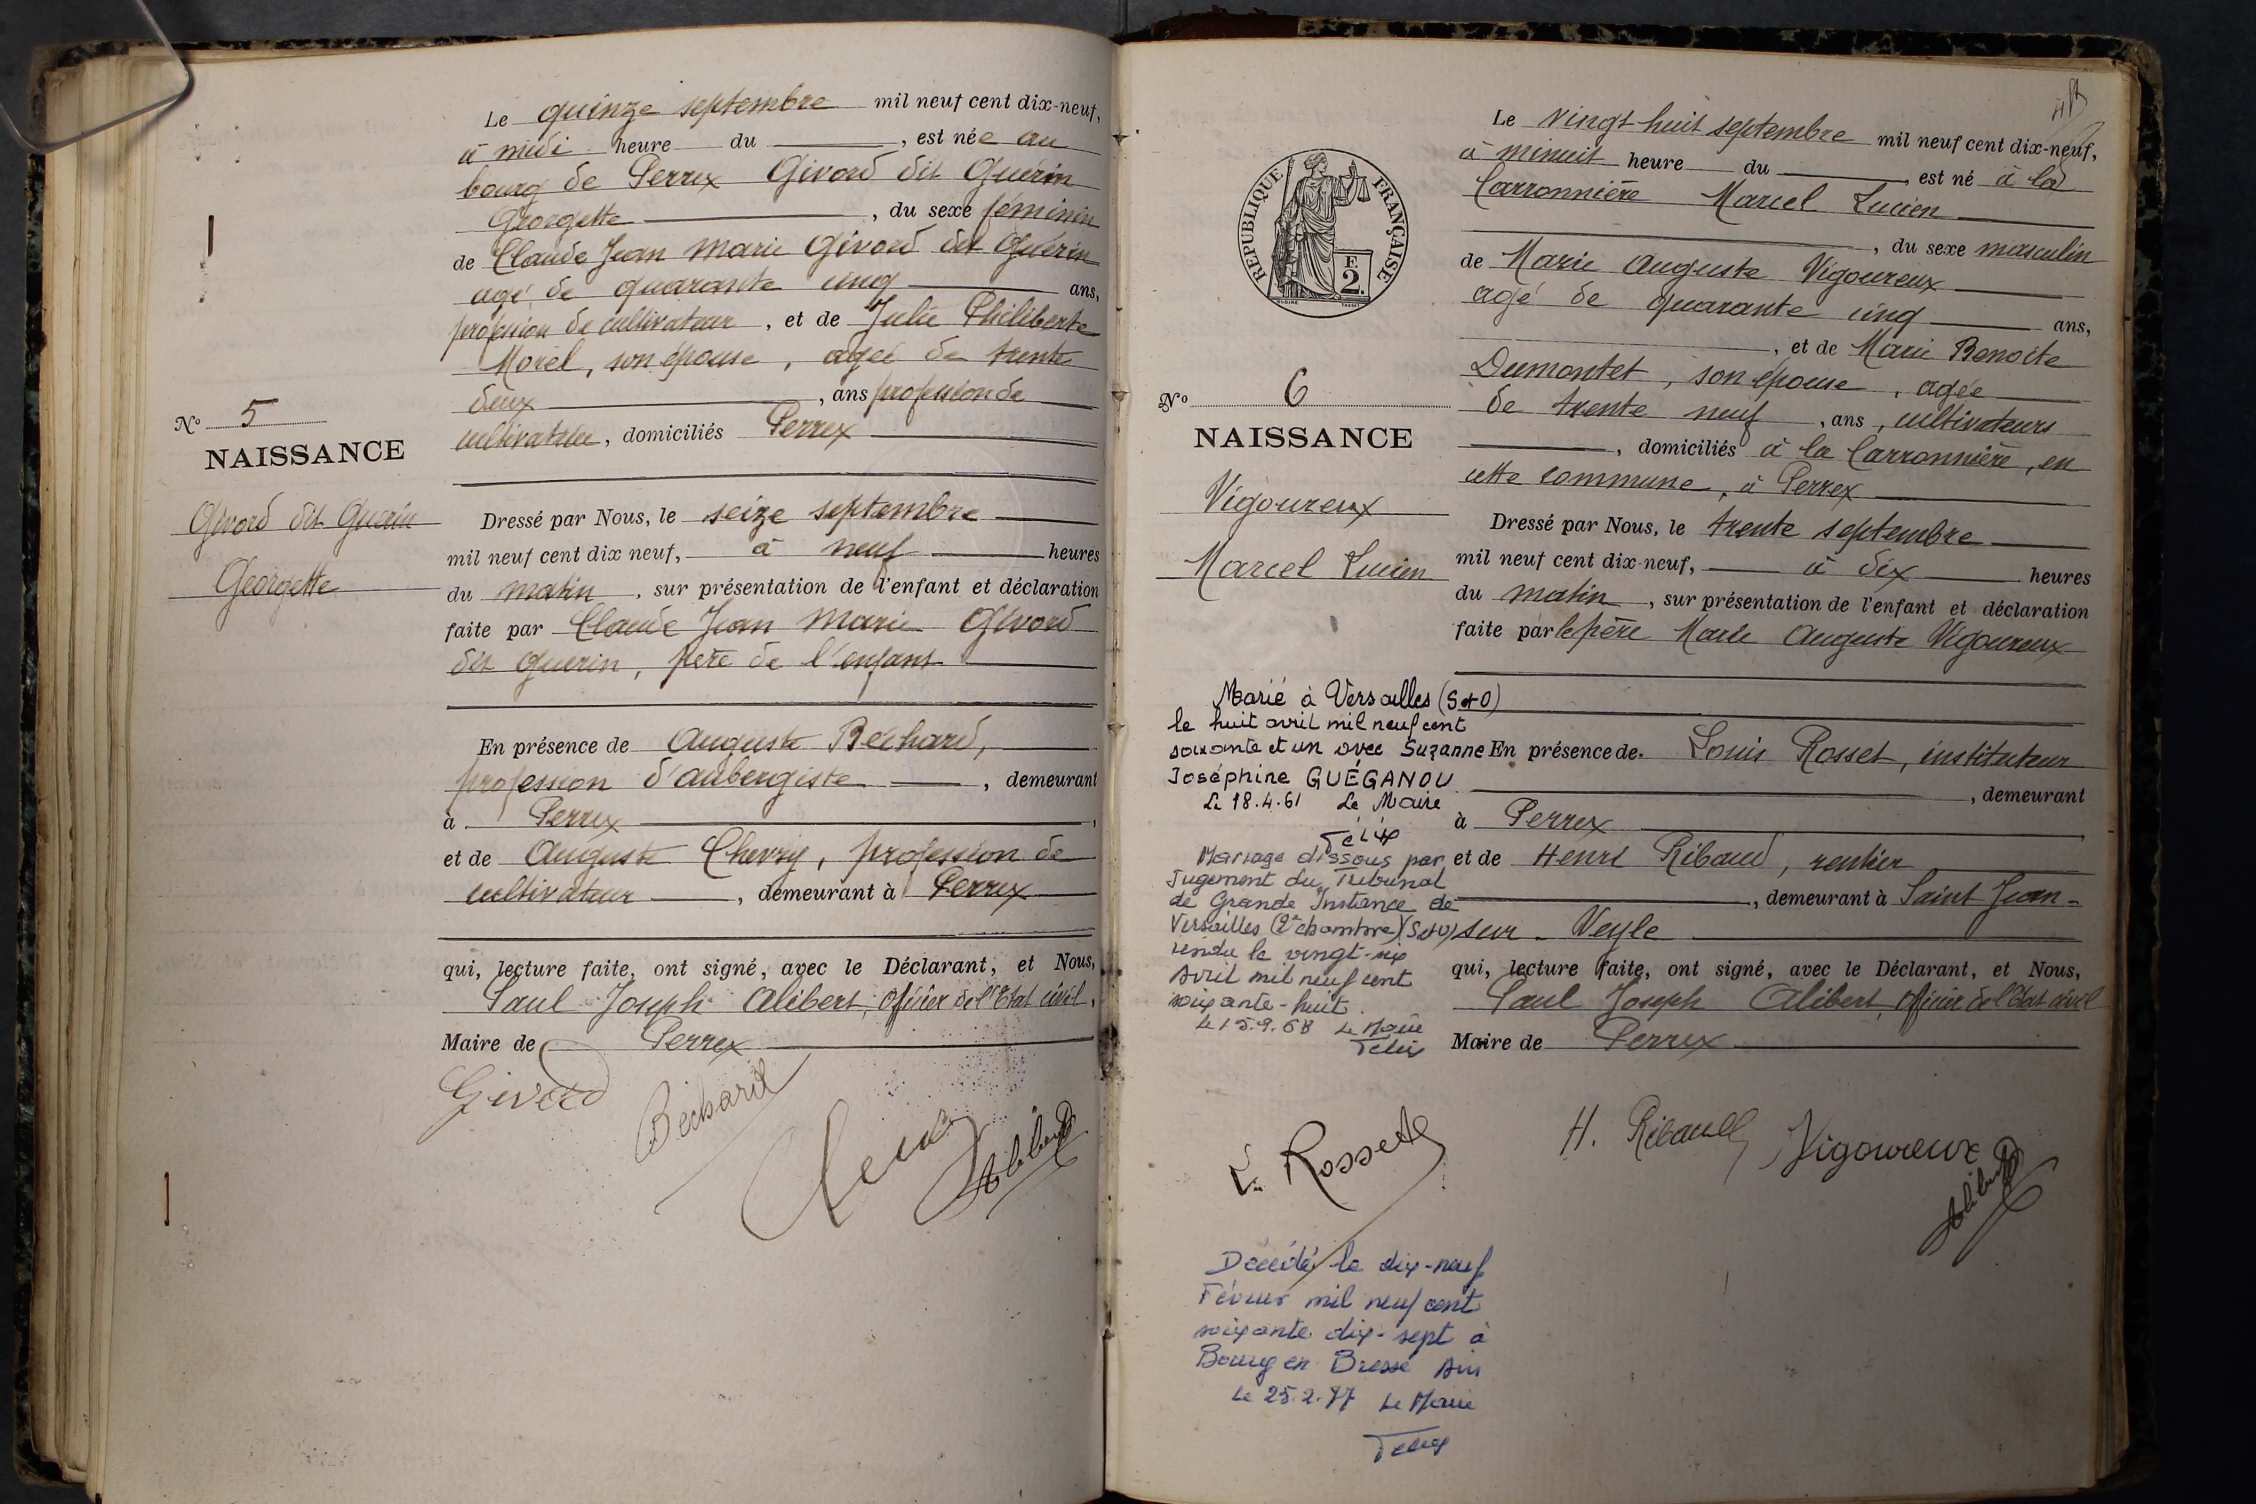 Le quinze septembre mil neuf cent dix-neuf,
à midi heure du , est née au
bourg de Perrex Givord dit Guérin
Georgette , du sexe féminin
de Claude Jean Marie Givord dit Guérin
agé de quarante cinq ans,
profession de cultivateur , et de Julie Philiberte
Morel, son épouse, agée de trente
deux , ans profession de
cultivatrice, domiciliés Perrex
No 5
NAISSANCE
Givord dit Guérin
Georgette
Dressé par Nous, le seize septembre
mil neuf cent dix neuf, à neuf heures
du matin , sur présentation de l'enfant et déclaration
faite par Claude Jean Marie Givord
dit Guerin, père de l'enfant
En présence de Auguste Bechard,
profession d'aubergiste , demeurant
à Perrex ,
et de Auguste Chevry, profession de
cultivateur , demeurant à Perrex
qui, lecture faite, ont signé, avec le Déclarant, et Nous,
Paul Joseph Alibert, Officier de l'Etat civil,
Maire de Perrex
Givord
Bechard
Alibert
RÉPUBLIQUE FRANÇAISE
F.
2.
Le vingt huit septembre mil neuf cent dix-neuf,
à minuit heure du , est né à la
Carronnière Marcel Lucien
, du sexe masculin
de Marie Auguste Vigoureux
agé de quarante cinq ans,
, et de Marie Benoite
Dumontet, son épouse, agée
de trente neuf , ans, cultivateurs
, domiciliés à la Carronnière, en
cette commune, à Perrex
No 6
NAISSANCE
Vigoureux
Marcel Lucien
Dressé par Nous, le trente septembre
mil neuf cent dix-neuf, à dix heures
du matin , sur présentation de l'enfant et déclaration
faite par le père Marie Auguste Vigoureux
En présence de Louis Rosset, instituteur
, demeurant
à Perrex
et de Henri Ribaud, rentier
, demeurant à Saint Jean-
sur-Veyle
qui, lecture faite, ont signé, avec le Déclarant, et Nous,
Paul Joseph Alibert, Officier de l'Etat civil
Maire de Perrex
Marié à Versailles (S et O)
le huit avril mil neuf cent
soixante et un avec Suzanne
Joséphine GUÉGANOU
Le 18.4.61 Le Maire
Mariage dissous par
Jugement du Tribunal
de Grande Instance de
Versailles (2e chambre) (S et O)
rendu le vingt-six
Avril mil neuf cent
soixante-huit.
Le 15.9.68 Le Maire
L. Rosset
H. Ribaud
Vigoureux
Alibert
Décédé le dix-neuf
Février mil neuf cent
soixante dix-sept à
Bourg en Bresse Ain
Le 25.2.77 Le Maire